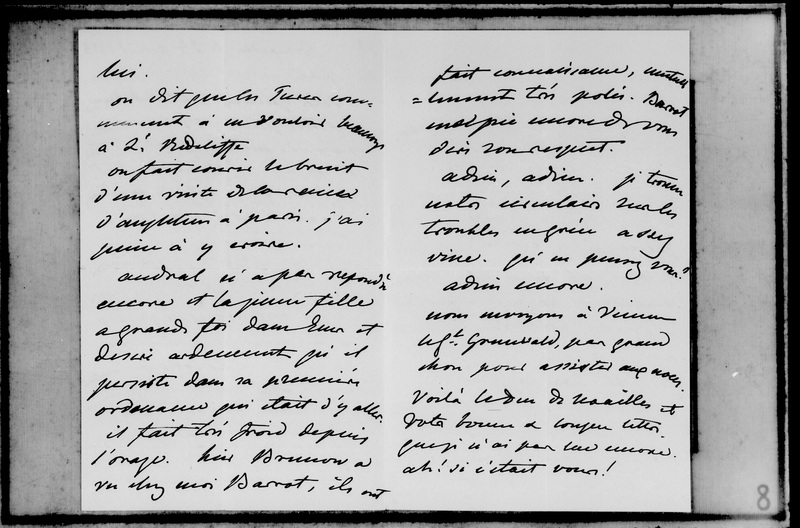 lui.
on dit que les Turcs com=
=mencent à en vouloir beaucoup
à Ld Redcliffe
on fait courir le bruit
d'une visite de la reine
d'angleterre à paris. j'ai
peine à y croire.
andral n'a pas repondu
encore et la jeune fille
a grande foi dans Ems et
desire ardemment qu'il
persiste dans sa première
ordonance qui était d'y aller.
il fait très froid depuis
l'orage. hier Brunnow a
vu chez moi Barrot, ils ont
fait connaissance, mutuel
=lement très polis. Barrot
me prie encore de vous
dire son respect.
adieu, adieu. je trouve
notre circulaire sur les
troubles en grèce assez
vive. qu'en pensez vous?
adieu encore.
nous envoyons à Vienne
le gt. Grunwald, pas grand
chose pour assister aux noces.
Voilà le duc de noailles et
votre bonne & longue lettre.
que je n'ai pas lue encore.
ah! si c'était vous!
8